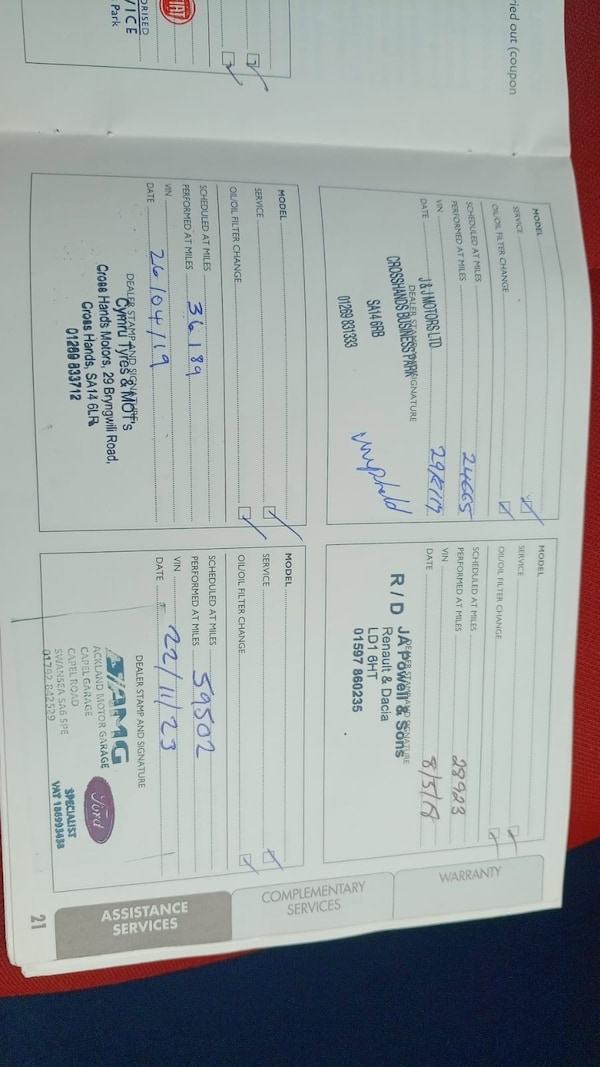 ORISED
VICE
Park
FIAT
ried out (coupon
MODEL
SERVICE
OIL/OIL FILTER CHANGE
SCHEDULED AT MILES
PERFORMED AT MILES 24665
VIN
DATE
DEALER STAMP AND SIGNATURE
J & J MOTORS LTD
CROSSHANDS BUSINESS PARK
SA14 6RB
01269 831333
MODEL
SERVICE
OIL/OIL FILTER CHANGE
SCHEDULED AT MILES
PERFORMED AT MILES 28923
VIN
DATE 8/5/18
DEALER STAMP AND SIGNATURE
R / D JA Powell & Sons
Renault & Dacia
LD1 6HT
01597 860235
MODEL
SERVICE
OIL/OIL FILTER CHANGE
SCHEDULED AT MILES
PERFORMED AT MILES 36189
VIN
DATE 26/04/19
DEALER STAMP AND SIGNATURE
Cymru Tyres & MOT's
Cross Hands Motors, 29 Bryngwili Road,
Cross Hands, SA14 6LR
01269 833712
MODEL
SERVICE
OIL/OIL FILTER CHANGE
SCHEDULED AT MILES
PERFORMED AT MILES 59502
VIN
DATE 22/11/23
DEALER STAMP AND SIGNATURE
AMG
ACKLAND MOTOR GARAGE
CAPEL GARAGE
CAPEL ROAD
SWANSEA SA6 5PE
01792 842529
Ford
SPECIALIST
VAT 186993438
WARRANTY
COMPLEMENTARY
SERVICES
ASSISTANCE
SERVICES
21